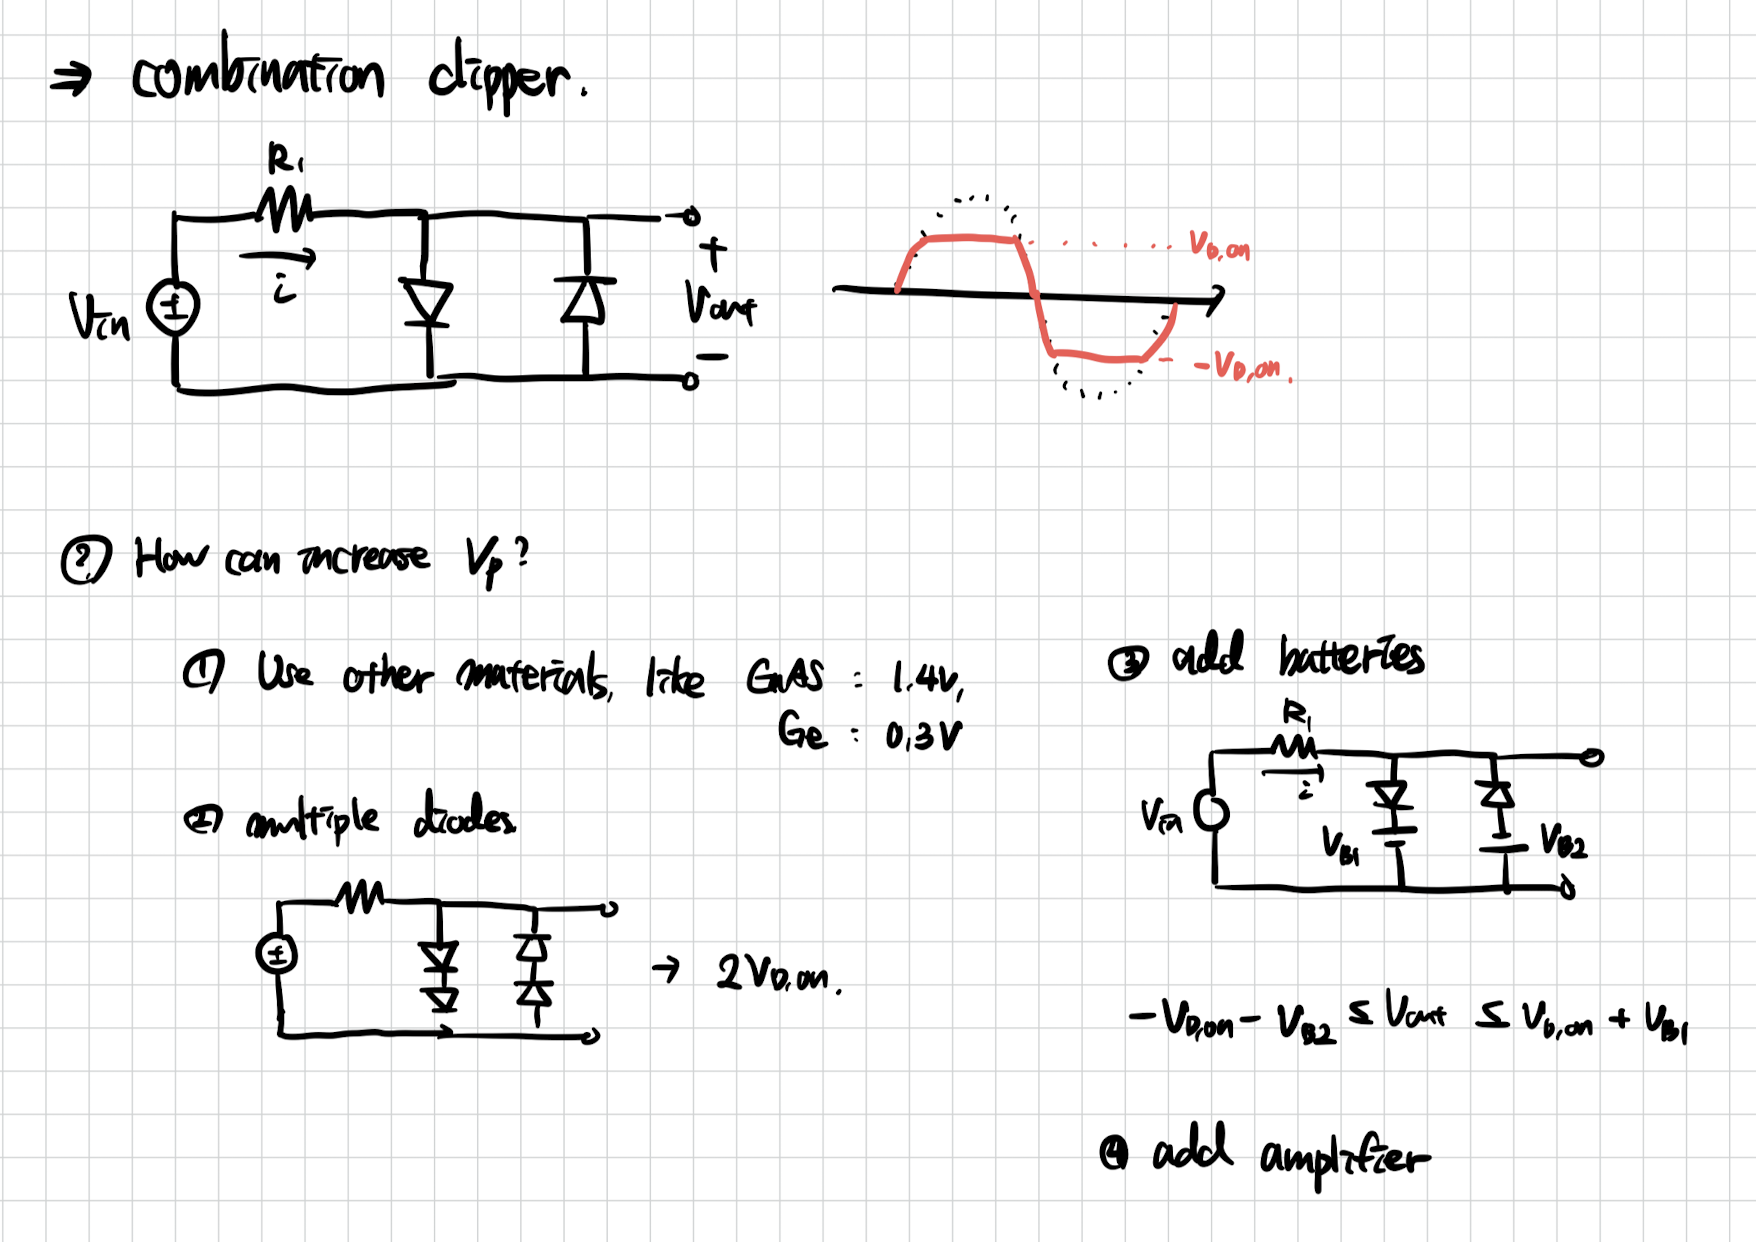 ⇒ combination clipper.
R₁
i
Vin
+
Vout
−
V_D,on
-V_D,on.
? How can increase Vp?
① Use other materials, like GaAS : 1.4V,
Ge : 0.3V
② multiple diodes
→ 2V_D,on.
③ add batteries
R₁
i
Vin
V_B1
V_B2
-V_D,on - V_B2 ≤ Vout ≤ V_D,on + V_B1
④ add amplifier